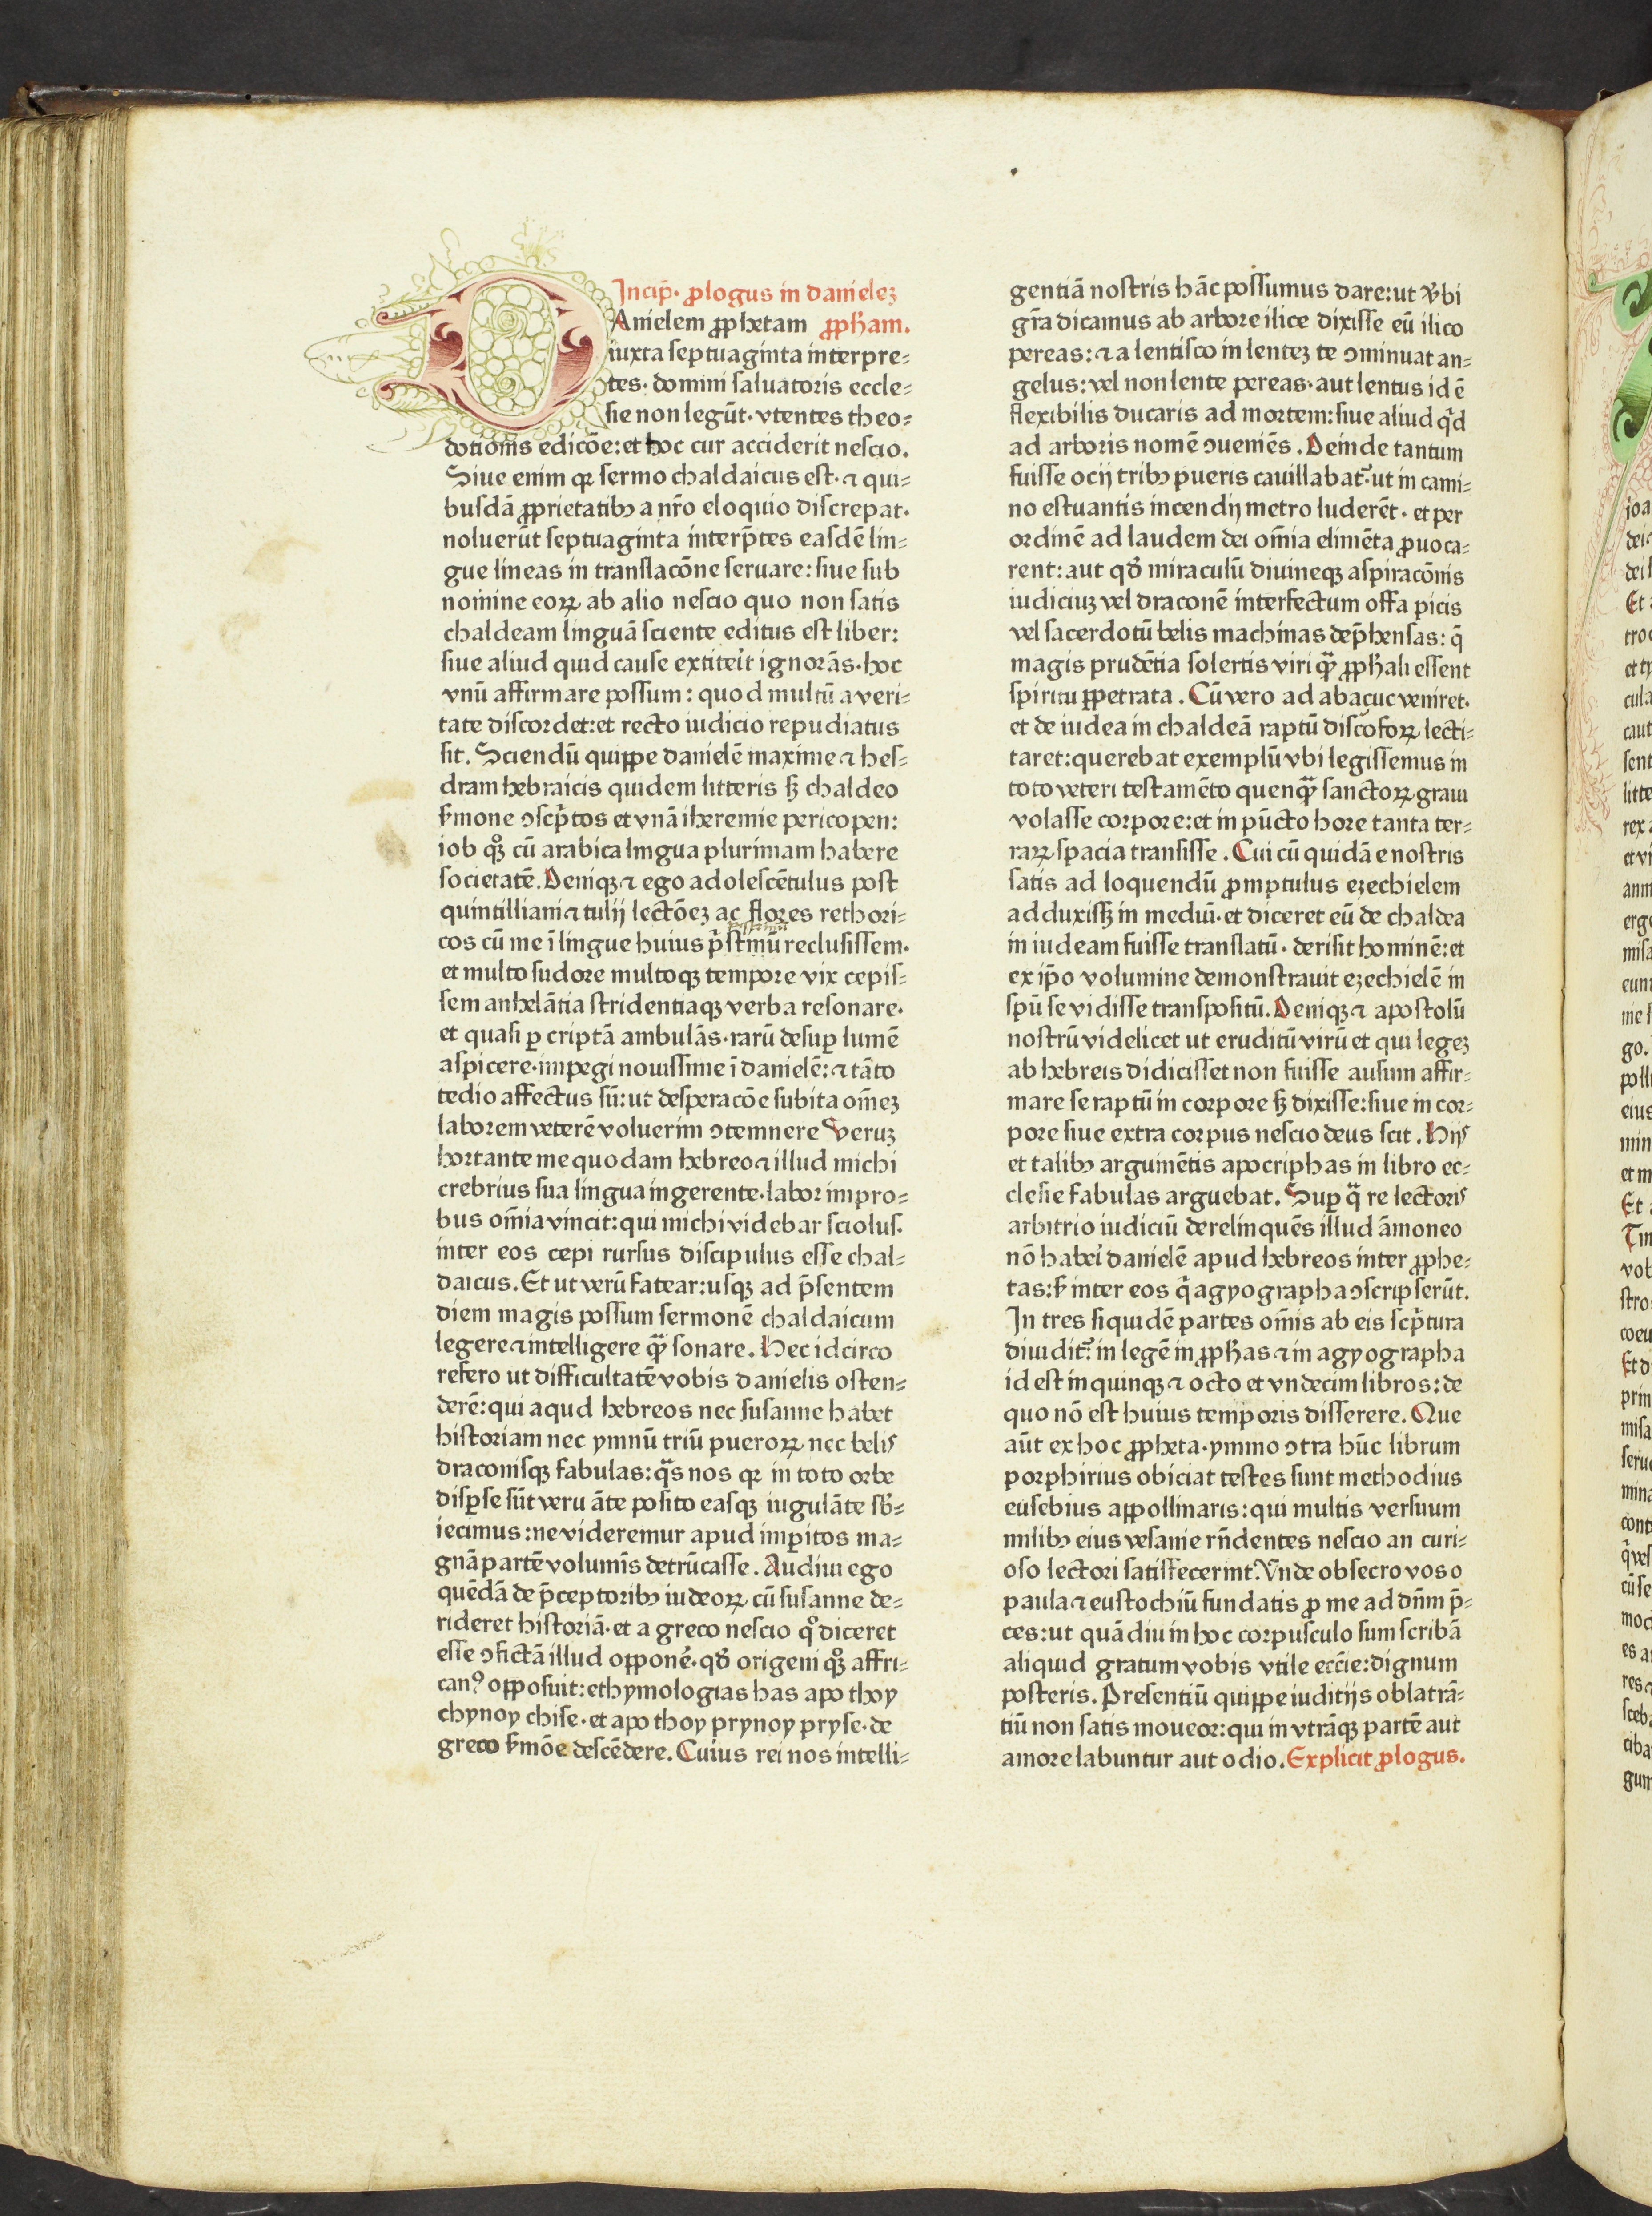 Incip̄. ꝓlogus in danielez
DAnielem ꝓphetam ꝓpħam.
iuxta septuaginta interpre⸗
tes. domini saluatoris eccle⸗
sie non legūt. vtentes theo⸗
dotionis edicōe: et hoc cur acciderit nescio.
Siue enim qꝛ sermo chaldaicus est. ⁊ qui⸗
busdā ꝓprietatibꝫ a nr̄o eloquio discrepat.
noluerūt septuaginta interp̄tes easdē lin⸗
gue lineas in translacōne seruare: siue sub
nomine eoꝝ ab alio nescio quo non satis
chaldeam linguā sciente editus est liber:
siue aliud quid cause extiterit ignorās. hoc
vnū affirmare possum: quod multū a veri⸗
tate discordet: et recto iudicio repudiatus
sit. Sciendū quippe danielē maxime ⁊ hes⸗
dram hebraicis quidem litteris sꝫ chaldeo
ẜmone ↄscp̄tos et vnā iheremie pericopen:
iob qͦꝫ cū arabica lingua plurimam habere
societatē. Deniqꝫ ⁊ ego adolescētulus post
quintilliani ⁊ tulij lectōez ac flores rethori⸗
cos cū me ī lingue huius p̄stinū reclusissem.
et multo sudore multoqꝫ tempore vix cepis⸗
sem anhelātia stridentiaqꝫ verba resonare.
et quasi ꝑ criptā ambulās. rarū desuꝑ lumē
aspicere. impegi nouissime ī danielē: ⁊ tāto
tedio affectus sū: ut desperacōe subita om̄ez
laborem veterē voluerim ↄtemnere Veruz
hortante me quodam hebreo ⁊ illud michi
crebrius sua lingua ingerente. labor impro⸗
bus om̄ia vincit: qui michi videbar sciolus.
inter eos cepi rursus discipulus esse chal⸗
daicus. Et ut verū fatear: usqꝫ ad p̄sentem
diem magis possum sermonē chaldaicum
legere ⁊ intelligere qᷓꝫ sonare. Hec idcirco
refero ut difficultatē vobis danielis osten⸗
derē: qui aqud hebreos nec susanne habet
historiam nec ymnū triū pueroꝝ nec belis
draconisqꝫ fabulas: qᷓs nos qꝛ in toto orbe
disꝑse sūt veru āte posito easqꝫ iugulāte sb̄⸗
iecimus: ne videremur apud imꝑitos ma⸗
gnā partē volumīs detrūcasse. Audiui ego
quēdā de p̄ceptoribꝫ iudeoꝝ cū susanne de⸗
rideret historiā. et a greco nescio qͦ diceret
esse ↄfictā illud opponē. qd̄ origeni qͦꝫ affri⸗
canꝰ opposuit: ethymologias has apo thoy
chynoy chise. et apo thoy prynoy pryse. de
greco ẜmōe descēdere. Cuius rei nos intelli⸗
gentiā nostris hāc possumus dare: ut v̄bi
gr̄a dicamus ab arbore ilice dixisse eū ilico
pereas: ⁊ a lentisco in lentez te ↄminuat an⸗
gelus: vel non lente pereas. aut lentus id ē
flexibilis ducaris ad mortem: siue aliud qͥd
ad arboris nomē ↄueniēs. Deinde tantum
fuisse ocij tribꝫ pueris cauillabat᷑. ut in cami⸗
no estuantis incendij metro luderēt. et per
ordinē ad laudem dei om̄ia elimēta ꝓuoca⸗
rent: aut qd̄ miraculū diuineqꝫ aspiracōnis
iudiciuz vel draconē interfectum offa picis
vel sacerdotū belis machinas dep̄hensas: q̄
magis prudētia solertis viri qᷓꝫ ꝓpħali essent
spiritu ꝑpetrata. Cū vero ad abacuc veniret.
et de iudea in chaldeā raptū discofoꝝ lecti⸗
taret: querebat exemplū vbi legissemus in
toto veteri testamēto quenqᷓꝫ sanctoꝝ graui
volasse corpore: et in pūcto hore tanta ter⸗
raꝝ spacia transisse. Cui cū quidā e nostris
satis ad loquendū ꝓmptulus ezechielem
adduxissꝫ in mediū. et diceret eū de chaldea
in iudeam fuisse translatū. derisit hominē: et
ex ip̄o volumine demonstrauit ezechielē in
spū se vidisse transpositū. Deniqꝫ ⁊ apostolū
nostrū videlicet ut eruditū virū et qui legez
ab hebreis didicisset non fuisse ausum affir⸗
mare se raptū in corpore sꝫ dixisse: siue in cor⸗
pore siue extra corpus nescio deus scit. Hijs
et talibꝫ argumētis apocriphas in libro ec⸗
clesie fabulas arguebat. Suꝑ qᷓ re lectoris
arbitrio iudiciū derelinquēs illud āmoneo
nō haberi danielē apud hebreos inter ꝓphe⸗
tas: ẜ inter eos qͥ agyographa ↄscripserūt.
In tres siquidē partes om̄is ab eis scp̄tura
diuidit᷑: in legē in ꝓpħas ⁊ in agyographa
id est in quinqꝫ ⁊ octo et vndecim libros: de
quo nō est huius temporis disserere. Que
aūt ex hoc ꝓpheta. ymmo ↄtra hūc librum
porphirius obiciat testes sunt methodius
eusebius appollinaris: qui multis versuum
milibꝫ eius vesanie rn̄dentes nescio an curi⸗
oso lectori satisfecerint. Vnde obsecro vos o
paula ⁊ eustochiū fundatis ꝓ me ad dn̄m p̄⸗
ces: ut quādiu in hoc corpusculo sum scribā
aliquid gratum vobis vtile eccīe: dignum
posteris. Presentiū quippe iuditijs oblatrā⸗
tiū non satis moueor: qui in vtrāqꝫ partē aut
amore labuntur aut odio. Explicit ꝓlogus.